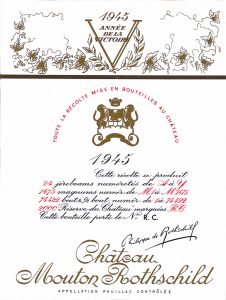 1945
ANNÉE
DE LA
VICTOIRE
V
TOUTE LA RÉCOLTE MISE EN BOUTEILLES AU CHÂTEAU
1945
Cette récolte a produit
24 jéroboams numérotés de A à Y
1475 magnums numér. de M à M1475
74422 bout. & ½ bout. numér. de 1 à 74422
2000 "Réserve du Château" marquées R.C.
Cette bouteille porte le N° R. C.
Philippe de Rothschild
Château
Mouton Rothschild
APPELLATION PAUILLAC CONTRÔLÉE